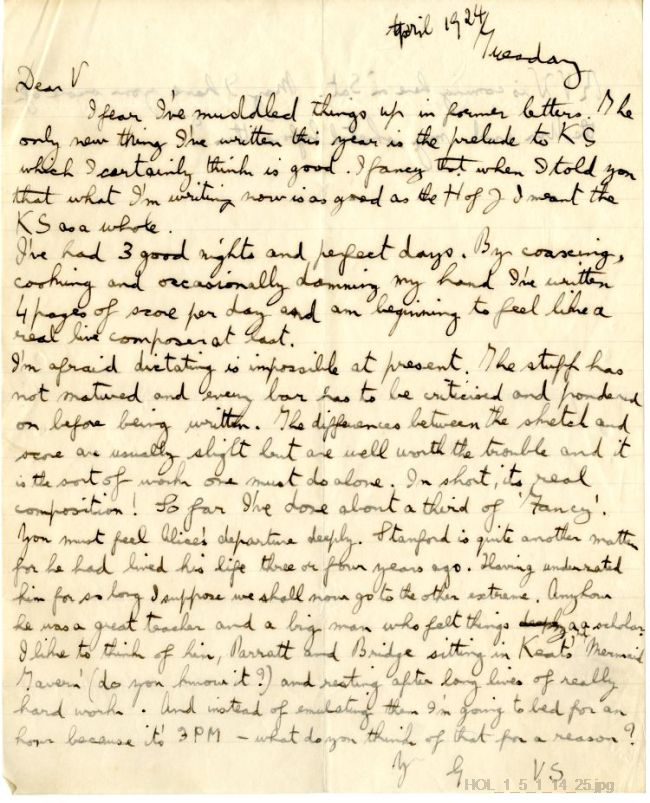 April 1924
Tuesday
Dear V
I fear I've muddled things up in former letters. The
only new thing I've written this year is the prelude to KS
which I certainly think is good. I fancy that when I told you
that what I'm writing now is as good as the H of J I meant the
KS as a whole.
I've had 3 good nights and perfect days. By coaxing,
cooking and occasionally damning my hand I've written
4 pages of score per day and am beginning to feel like a
real live composer at last.
I'm afraid dictating is impossible at present. The stuff has
not matured and every bar has to be criticised and pondered
on before being written. The differences between the sketch and
score are usually slight but are well worth the trouble and it
is the sort of work one must do alone. In short, its real
composition! So far I've done about a third of 'Fancy'.
You must feel Alice's departure deeply. Stanford is quite another matter
for he had lived his life three or four years ago. Having underrated
him for so long I suppose we shall now go to the other extreme. Anyhow
he was a great teacher and a big man who felt things deeply as a scholar.
I like to think of him, Parratt and Bridge sitting in Keats' 'Mermaid
Tavern' (do you know it?) and resting after long lives of really
hard work. And instead of emulating them I'm going to bed for an
hour because it's 3 PM – what do you think of that for a reason?
Yr G VS
HOL_1_5_1_14_25.jpg